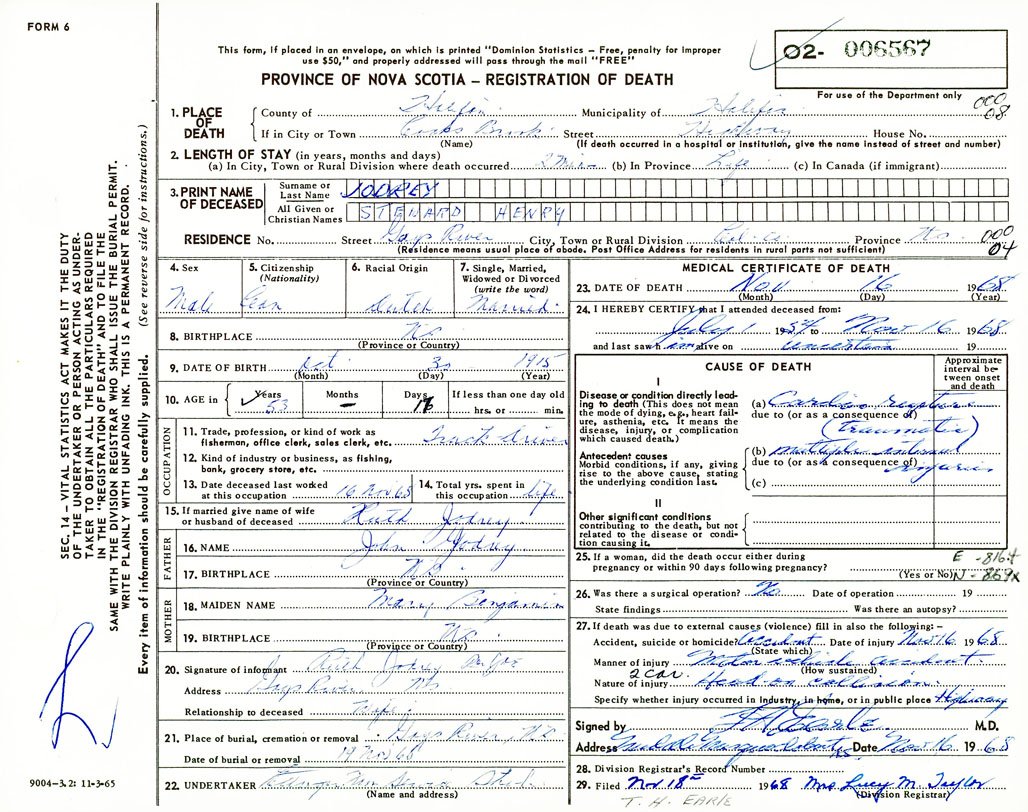 FORM 6
This form, if placed in an envelope, on which is printed "Dominion Statistics – Free, penalty for improper
use $50," and properly addressed will pass through the mail "FREE"
PROVINCE OF NOVA SCOTIA – REGISTRATION OF DEATH
O2- 006567
For use of the Department only
000
08
1. PLACE OF DEATH
County of Halifax Municipality of Halifax
If in City or Town Cooks Brook Street Highway House No.
(Name) (If death occurred in a hospital or institution, give the name instead of street and number)
2. LENGTH OF STAY (in years, months and days)
(a) In City, Town or Rural Division where death occurred 2 Min (b) In Province Life (c) In Canada (if immigrant)
3. PRINT NAME OF DECEASED
Surname or Last Name JODREY
All Given or Christian Names STENARD HENRY
RESIDENCE No. Street Gays River City, Town or Rural Division Province NS
(Residence means usual place of abode. Post Office Address for residents in rural parts not sufficient)
000
04
4. Sex Male
5. Citizenship (Nationality) Can
6. Racial Origin Dutch
7. Single, Married, Widowed or Divorced (write the word) Married
8. BIRTHPLACE NS
(Province or Country)
9. DATE OF BIRTH Oct 30 1915
(Month) (Day) (Year)
10. AGE in Years 53 Months – Days 16 If less than one day old hrs. or min.
OCCUPATION
11. Trade, profession, or kind of work as fisherman, office clerk, sales clerk, etc. Truck driver
12. Kind of industry or business, as fishing, bank, grocery store, etc.
13. Date deceased last worked at this occupation 16 Nov 68
14. Total yrs. spent in this occupation Life
15. If married give name of wife or husband of deceased Ruth Jodrey
FATHER
16. NAME John Jodrey
17. BIRTHPLACE NS
(Province or Country)
MOTHER
18. MAIDEN NAME Mary Benjamin
19. BIRTHPLACE NS
(Province or Country)
20. Signature of informant Ruth Jodrey
Address Gays River NS
Relationship to deceased Wife
21. Place of burial, cremation or removal Gays River, NS
Date of burial or removal 19 Nov 68
22. UNDERTAKER
(Name and address)
MEDICAL CERTIFICATE OF DEATH
23. DATE OF DEATH Nov 16 1968
(Month) (Day) (Year)
24. I HEREBY CERTIFY that I attended deceased from:
July 1 19 to Nov 16 1968
and last saw him alive on uncertain 19
CAUSE OF DEATH
Approximate interval between onset and death
I
Disease or condition directly leading to death (This does not mean the mode of dying, e.g., heart failure, asthenia, etc. It means the disease, injury, or complication which caused death.)
(a) Cardiac rupture
due to (or as a consequence of)
(traumatic)
Antecedent causes
Morbid conditions, if any, giving rise to the above cause, stating the underlying condition last.
(b) multiple internal
due to (or as a consequence of)
injuries
(c)
II
Other significant conditions contributing to the death, but not related to the disease or condition causing it.
25. If a woman, did the death occur either during pregnancy or within 90 days following pregnancy?
(Yes or No)
E -816.4
N - 869x
26. Was there a surgical operation? No Date of operation 19
State findings Was there an autopsy?
27. If death was due to external causes (violence) fill in also the following: –
Accident, suicide or homicide? Accident Date of injury Nov 16 1968
(State which)
Manner of injury Motor vehicle accident.
2 car. (How sustained)
Nature of injury Head on collision.
Specify whether injury occurred in industry, in home, or in public place Highway
Signed by T H Earle M.D.
Address Middle Musquodoboit, NS Date Nov 16 1968
28. Division Registrar's Record Number
29. Filed Nov 18 1968 Mrs. Lucy M. Taylor
(Division Registrar)
T. H. EARLE
SEC. 14 – VITAL STATISTICS ACT MAKES IT THE DUTY
OF THE UNDERTAKER OR PERSON ACTING AS UNDER-
TAKER TO OBTAIN ALL THE PARTICULARS REQUIRED
IN THE "REGISTRATION OF DEATH" AND TO FILE THE
SAME WITH THE DIVISION REGISTRAR WHO SHALL ISSUE THE BURIAL PERMIT.
WRITE PLAINLY WITH UNFADING INK. THIS IS A PERMANENT RECORD.
Every item of information should be carefully supplied. (See reverse side for instructions.)
9004-3.2: 11-3-65